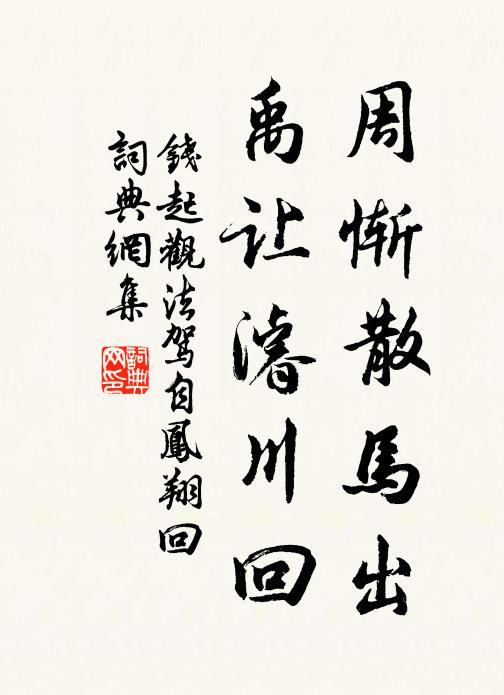 周惭散馬出
禹让濬川回
錢起觀法驾自鳳翔回
詞典網集
詞典网印